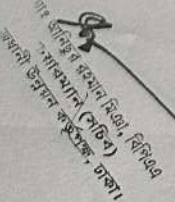 আনিছুর রহমান মিঞা, বিপিএএ
চেয়ারম্যান (সচিব)
উন্নয়ন কর্তৃপক্ষ, ঢাকা।